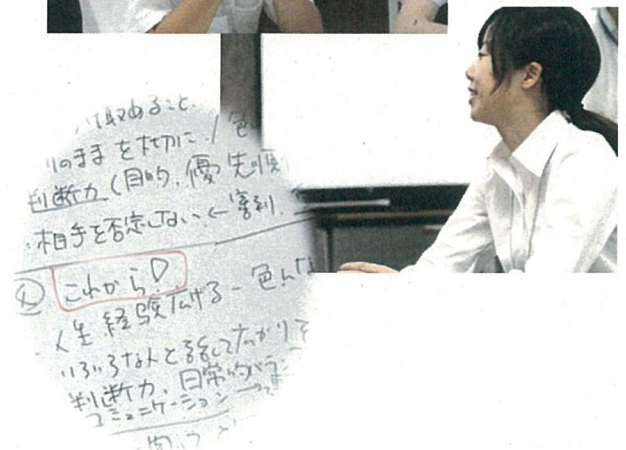 取めること、
のままを大切に / 色
判断力(目的、優先順
・相手を否定しない ←
これから!
人生経験広げる - 色んな
いろいろな人と話して広がり
判断力、日常的バラン
コミュニケーション →